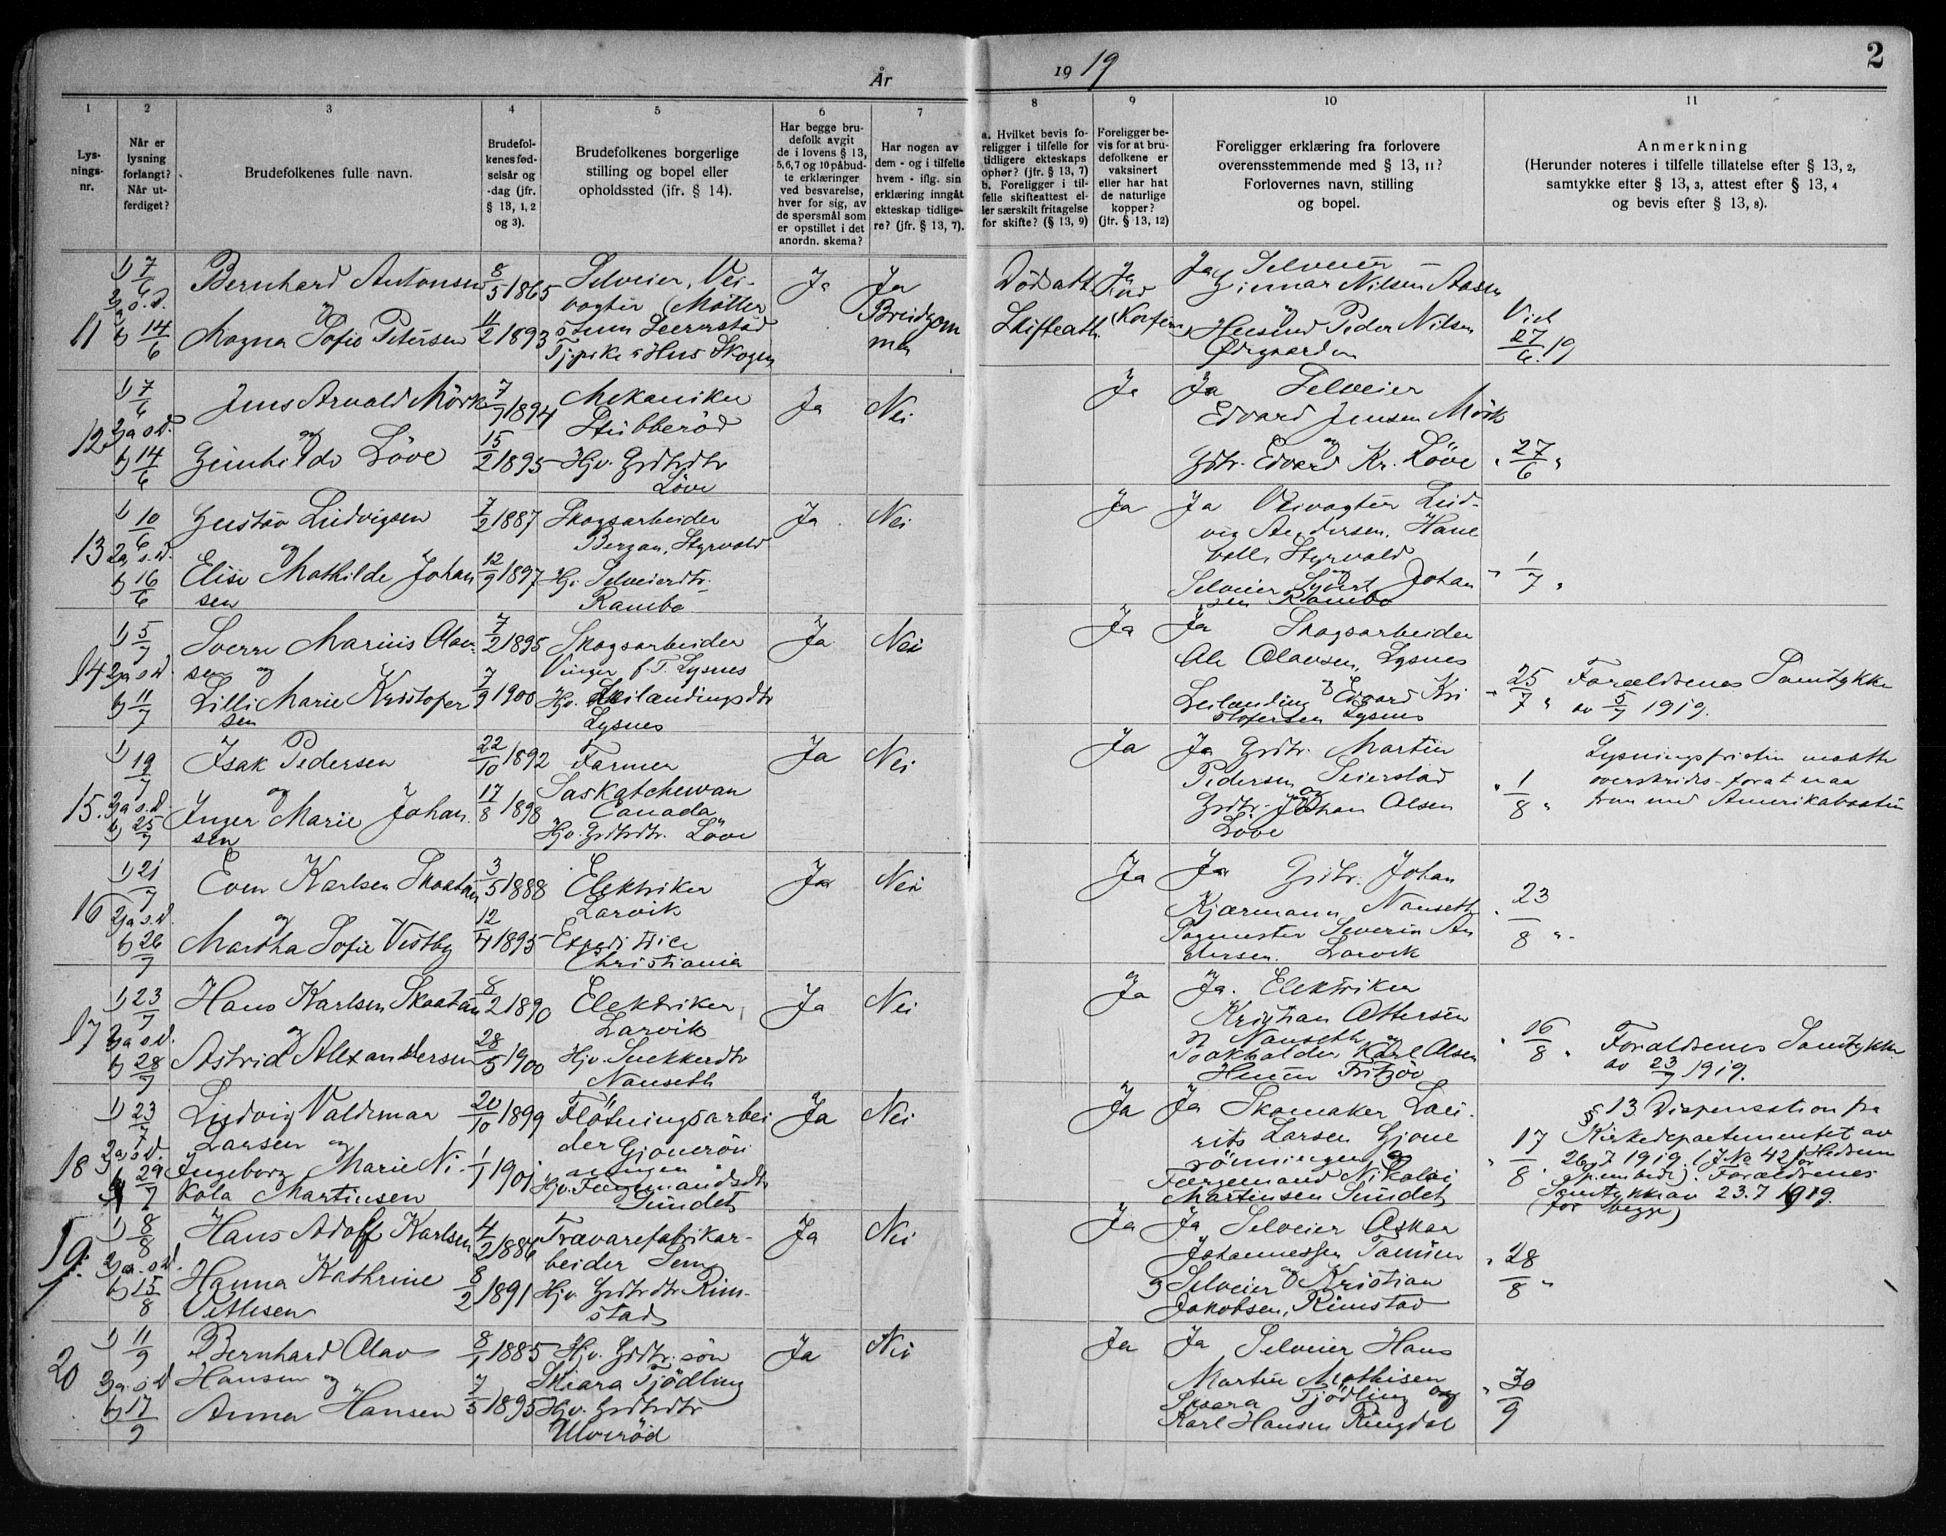 År 1919
2
1
2
3
4
5
6
7
8
9
10
11
Lys-
nings-
nr.
Når er
lysning
forlangt?
Når ut-
ferdiget?
Brudefolkenes fulle navn.
Brudefol-
kenes fød-
selsår og
-dag (jfr.
§ 13, 1, 2
og 3).
Brudefolkenes borgerlige
stilling og bopel eller
opholdssted (jfr. § 14).
Har begge bru-
defolk avgit
de i lovens § 13,
5, 6, 7 og 10 påbud-
te erklæringer
ved besvarelse,
hver for sig, av
de spørsmål som
er opstillet i det
anordn. skema?
Har nogen av
dem - og i tilfelle
hvem - iflg. sin
erklæring inngåt
ekteskap tidlige-
re? (jfr. § 13, 7).
a. Hvilket bevis fo-
religger i tilfelle for
tidligere ekteskaps
ophør? (jfr. § 13, 7)
b. Foreligger i til-
felle skifteattest el-
ler særskilt fritagelse
for skifte? (§ 13, 9)
Foreligger be-
vis for at bru-
defolkene er
vaksinert
eller har hat
de naturlige
kopper?
(jfr. § 13, 12)
Foreligger erklæring fra forlovere
overensstemmende med § 13, 11?
Forlovernes navn, stilling
og bopel.
Anmerkning
(Herunder noteres i tilfelle tillatelse efter § 13, 2,
samtykke efter § 13, 3, attest efter § 13, 4
og bevis efter § 13, 8).
11
1) 7/6
2) a s.d.
b) 14/6
Bernhard Antonsen
og
Magna Sofie Petersen
8/5 1865
11/2 1893
Selveier, Vei-
vogter
Tjpike
Skogen
Ja
Ja
Brudgom
men
Dødsatt
Skifteatt.
Ja
Ja Selveier
Gunnar Nilsen Aasen
og
Husmd Peder Nilsen
Ødegaarden
Viet
27/6 19
12
1) 7/6
2) a s.d.
b) 14/6
Jens Arvald Mörk
og
Gunhilda Löve
7/7 1894
15/2 1895
Mekaniker
Stubberöd
Hjv. Grdbrdtr
Löve
Ja
Nei
Ja
Ja Selveier
Edvard Jensen Mörk
og
Gdbr. Edvard Kr. Löve
" 27/6 "
13
1) 10/6
2) a s.d.
b) 16/6
Gustav Ludvigsen
og
Elise Mathilde Johan
sen
7/2 1887
12/9 1897
Skogsarbeider
Bergan, Styrvold
Hjv. Selveierdtr.
Rambo
Ja
Nei
Ja
Ja Veivogter Lud-
vig Andersen, Hane
voll, Styrvold
og
Selveier Syvert Johan
sen Rambo
" 1/7 "
14
1) 5/7
2) a s.d.
b) 11/7
Sverre Marius Olav-
sen og
Lilli Marie Kristofer
sen
7/2 1895
7/9 1900
Skogsarbeider
Vinger f. T. Lysnes
Hjv. Leilandingsdtr
Lysnes
Ja
Nei
Ja
Ja Skogsarbeider
Ole Olavsen, Lysnes
Leilanding Edvard Kri
stofersen Lysnes
" 25/7 "
Forældrenes Samtykke
av 5/7 1919.
15.
1) 19/7
2) a s.d.
b) 25/7
Isak Pedersen
og
Inger Marie Johan
sen
22/10 1892
17/8 1898
Farmer
Saskatchewan
Canada
Hjv. Grdbrdtr. Löve
Ja
Nei
Ja
Ja Grdbr. Martin
Pedersen Seierstad
og
Grdbr. Johan Olsen
Löve
" 1/8 "
Lysningsfristen maatte
overskrides forat naa
frem med Amerikabaaten
16
1) 21/7
2) a s.d.
b) 26/7
Even Karlsen Skaatan
og
Martha Sofie Vestby
3/5 1888
12/4 1895
Elektriker
Larvik
Expeditrice
Christiania
Ja
Nei
Ja
Ja Grdbr. Johan
Kjærmann, Nanseth
Sagmester Severin An
dersen. Larvik
" 23/8 "
17
1) 23/7
2) a s.d.
b) 28/7
Hans Karlsen Skaatan
og
Astrid Alexandersen
8/2 1890
28/5 1900
Elektriker,
Larvik
Hjv. Snekkerdtr
Nanseth
Ja
Nei
Ja
Ja. Elektriker
Kristian Ottersen
Nanseth og
Karl Olsen
Fritzöe
" 16/8 "
Forældrenes Samtykke
av 23/7 1919.
18
1) 23/7
2) a s.d.
b) 29/7
Ludvig Valdemar
Larsen og
Ingeborg Marie Ni-
kola Martinsen
20/10 1899
1/1 1901
Flötningsarbei
der Gjonerön
ningen
Hjv. Færgemandsdtr
Sundet
Ja
Nei
Ja
Ja Skomaker Lau-
rits Larsen Gjone
rönningen og
Færgemand Nikolai
Martinsen Sundet
" 17/8 "
§ 13 Dispensation fra
Kirkedepartementet av
26.7 1919 (J No 42
Forældrenes
Samtykke av 23.7 1919.
(for begge)
19.
1) 8/8
2) a. s.d.
b) 15/8
Hans Adolf Karlsen
Hanna Kathrine
Vetlesen
4/2 1886
8/2 1891
Trævarefabrikar-
beider Sem
Hjv. Grdbrdtr Rim-
stad
Ja
Nei
Ja
Ja Selveier Oskar
Johannessen
og
Selveier Kristian
Jakobsen, Rimstad
" 28/8 "
20
1) 11/9
2) a. s.d.
b) 17/9
Bernhard Olav
Hansen og
Anna Hansen
8/1 1885
7/5 1895
Hjv. Grdbr. sön
Skiara Tjödling
Hjv. Grdbrdtr
Ulveröd
Ja
Nei
Ja
Ja Selveier Hans
Martin Mathisen
Skiara Tjödling og
Karl Hansen Ringdal
" 30/9